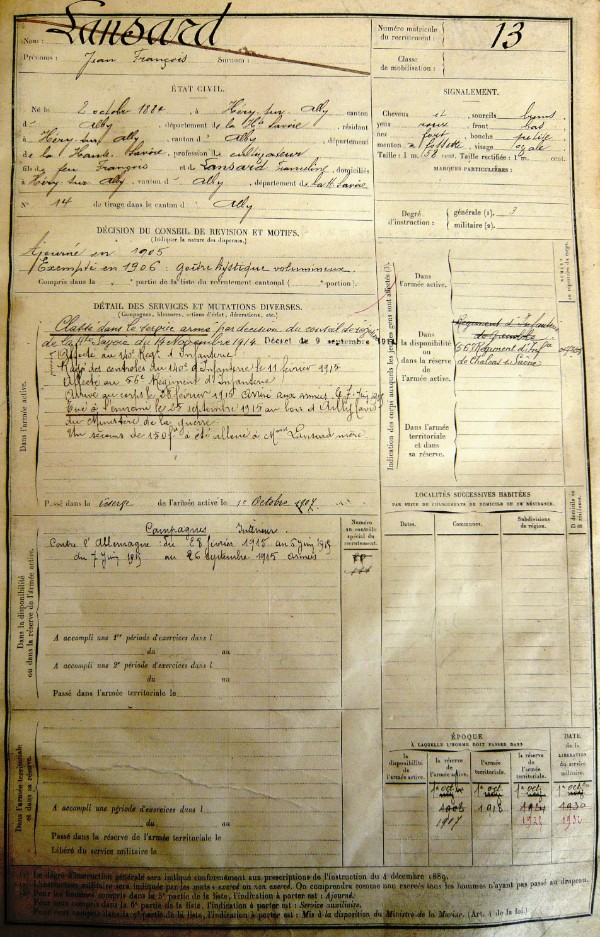 Nom : Lansard
Prénoms : Jean François Surnom :
Numéro matricule du recrutement : 13
Classe de mobilisation :
ÉTAT CIVIL.
Né le 2 octobre 1884, à Héry-sur-Alby canton
d' Alby, département de la Hte Savoie, résidant
à Héry-sur-Alby, canton d' Alby, département
de la Haute Savoie, profession de cultivateur
fils de feu François et de Lansard, domiciliés
à Héry-sur-Alby, canton d' Alby, département de la Hte Savoie
N° 14 de tirage dans le canton d' Alby
SIGNALEMENT.
Cheveux et sourcils bruns
yeux roux, front bas
nez fort, bouche petite
menton à fossette, visage ovale
Taille : 1 m. cent. Taille rectifiée : 1 m. cent.
MARQUES PARTICULIÈRES :
Degré d'instruction : générale (1). 3
militaire (2).
DÉCISION DU CONSEIL DE REVISION ET MOTIFS.
(Indiquer la nature des dispenses.)
Ajourné en 1905
Exempté en 1906 : goitre kystique volumineux.
Compris dans la partie de la liste du recrutement cantonal ( portion).
DÉTAIL DES SERVICES ET MUTATIONS DIVERSES.
(Campagnes, blessures, actions d'éclat, décorations, etc.)
Dans l'armée active.
Classé dans le service armé par décision du conseil de révision
de la Hte Savoie du 14 Novembre 1914. Décret du 9 septembre 1914
Affecté au 140e Régt d'Infanterie
Rayé des contrôles du 140e d'Infanterie le 11 février 1915
Affecté au 56e Régiment d'Infanterie
Arrivé au corps le 28 février 1915 aux armées le 7 Juin 1915
Tué à l'ennemi le 25 septembre 1915 au bois d'Ailly (avis
du Ministère de la guerre
Un secours de 150 f a été alloué à Mme Lansard mère
Passé dans la réserve de l'armée active le 1er Octobre 1907
Indication des corps auxquels les jeunes gens sont affectés (3).
Dans l'armée active.
Dans la disponibilité ou dans la réserve de l'armée active.
Régiment d'Infanterie
de Grenoble
56e Régiment d'Infie
de Chalons s/ Saône
Dans l'armée territoriale et dans sa réserve.
Dans la disponibilité ou dans la réserve de l'armée active.
Campagnes Intérieur
Contre l'Allemagne du 28 février 1915 au 6 Juin 1915
du 7 Juin 1915 au 26 septembre 1915 armées
Numéro au contrôle spécial du recrutement.
A accompli une 1re période d'exercices dans l
du au
A accompli une 2e période d'exercices dans l
du au
Passé dans l'armée territoriale le
LOCALITÉS SUCCESSIVES HABITÉES
PAR SUITE DE CHANGEMENTS DE DOMICILE OU DE RÉSIDENCE.
Dates. Communes. Subdivisions de région. D domicile ou R résidence.
Dans l'armée territoriale et dans sa réserve.
A accompli une période d'exercices dans l
du au
Passé dans la réserve de l'armée territoriale le
Libéré du service militaire le
ÉPOQUE
À LAQUELLE L'HOMME DOIT PASSER DANS
la disponibilité de l'armée active. la réserve de l'armée active. l'armée territoriale. la réserve de l'armée territoriale. DATE de la LIBÉRATION du service militaire.
1er oct. 1er oct. 1er oct. 1er oct.
1918 1924 1930
1907 1932
(1) Le degré d'instruction générale sera indiqué conformément aux prescriptions de l'instruction du 4 décembre 1889.
(2) L'instruction militaire sera indiquée par les mots : exercé ou non exercé. On comprendra comme non exercés tous les hommes n'ayant pas passé au drapeau.
(3) Pour les hommes compris dans la 5e partie de la liste, l'indication à porter est : Ajourné.
Pour ceux compris dans la 6e partie de la liste, l'indication à porter est : Service auxiliaire.
Pour ceux compris dans la 7e partie de la liste, l'indication à porter est : Mis à la disposition du Ministre de la Marine. (Art. 4 de la loi.)